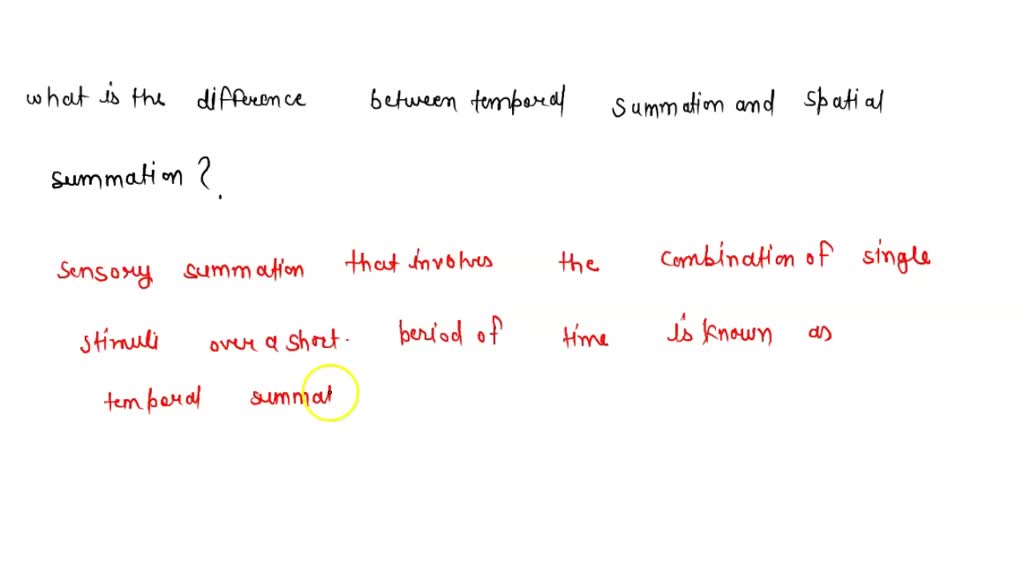 what is the difference between temporal summation and spatial
summation ?.
sensory summation that involves the combination of single
stimuli over a short. period of time is known as
temporal summat